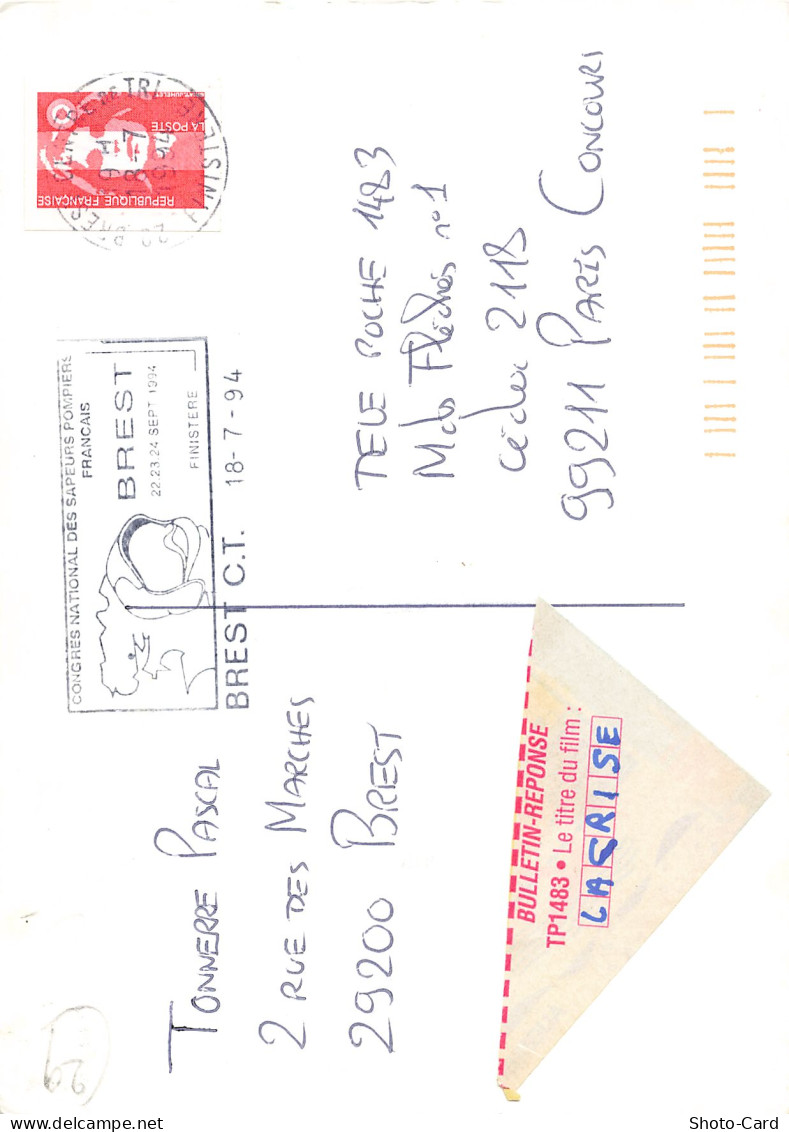 TONNERRE PASCAL
2 RUE DES MARCHES
29200 BREST
BULLETIN-REPONSE
TP1483 • Le titre du film :
LA CRISE
CONGRES NATIONAL DES SAPEURS POMPIERS
FRANCAIS
BREST
22.23.24 SEPT 1994
FINISTERE
BREST C.T. 18-7-94
REPUBLIQUE FRANÇAISE
LA POSTE
18-7
1994
FINISTERE
TELE POCHE 1483
Mots Fléchés n°1
Cédex 2118
99211 PARIS CONCOURS
29
Shoto-Card
www.delcampe.net